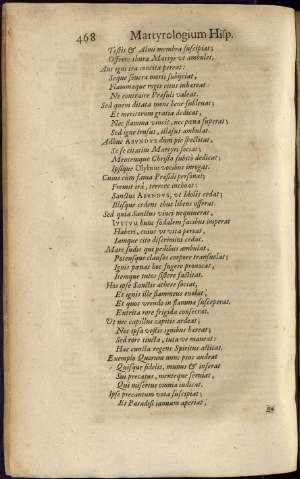 468 Martyrologium Hisp.
Testis & Almi membra suscipias;
Offerre thura Martyr vt ambules,
Aut igni ira concitæ pereat:
Seque seuera morti subijciat,
Flammaque rogis eius inhæreat
Ne contraire Præsuli valeat.
Sed quem ditata mens bene subleuat;
Et meritorum gratia dedicat,
Nec flamma vincit, nec pœna superat;
Sed igne trusus, illæsus ambulat.
Adhuc ABVNDVS dum pie spectitat,
Se se citatim Martyri sociat;
Mentemque Christo subitò dedicat;
Ipsique vocibus inrogat.
Cuius cùm fama Præsidi personat;
Fremit irâ, terrere inchoat:
Sanctus ABVNDVS, vt Idolis cedat;
Illisque cedens thus libens offerat.
Sed quia Sanctus vinci nequiuerat,
IVSTVM hunc sodalem facibus imperat
Haberi, cuius vt vita pereat,
Iamque citò discrimina cedat.
Mox sudis qui pedibus ambulat,
Potensque clauso corpore transuolat;
Ignis panas hac fugere pronocat;
Itemque tutos sistere factitat.
Hos ipse Sanctis athere sociat,
Et ignis ille flammeus euolat,
Et quos vrendo in flamma susceperat.
Exterita rore frigida consecrat.
Vt nec capillus capitis ardeat;
Nec ipsa vestis ignibus hæreat;
Sed rore tincta, tuta vt maneat:
Hac cuncta regens Spiritus actitat.
Exemplo Quorum nunc pios ardeat
Quisque fidelis, munus & inferat
Sui precatus, mentéque seruiat,
Qui misertus omnia iudicat.
Ipse precantum vota suscipiat;
Et Paradisi ianuam aperiat,